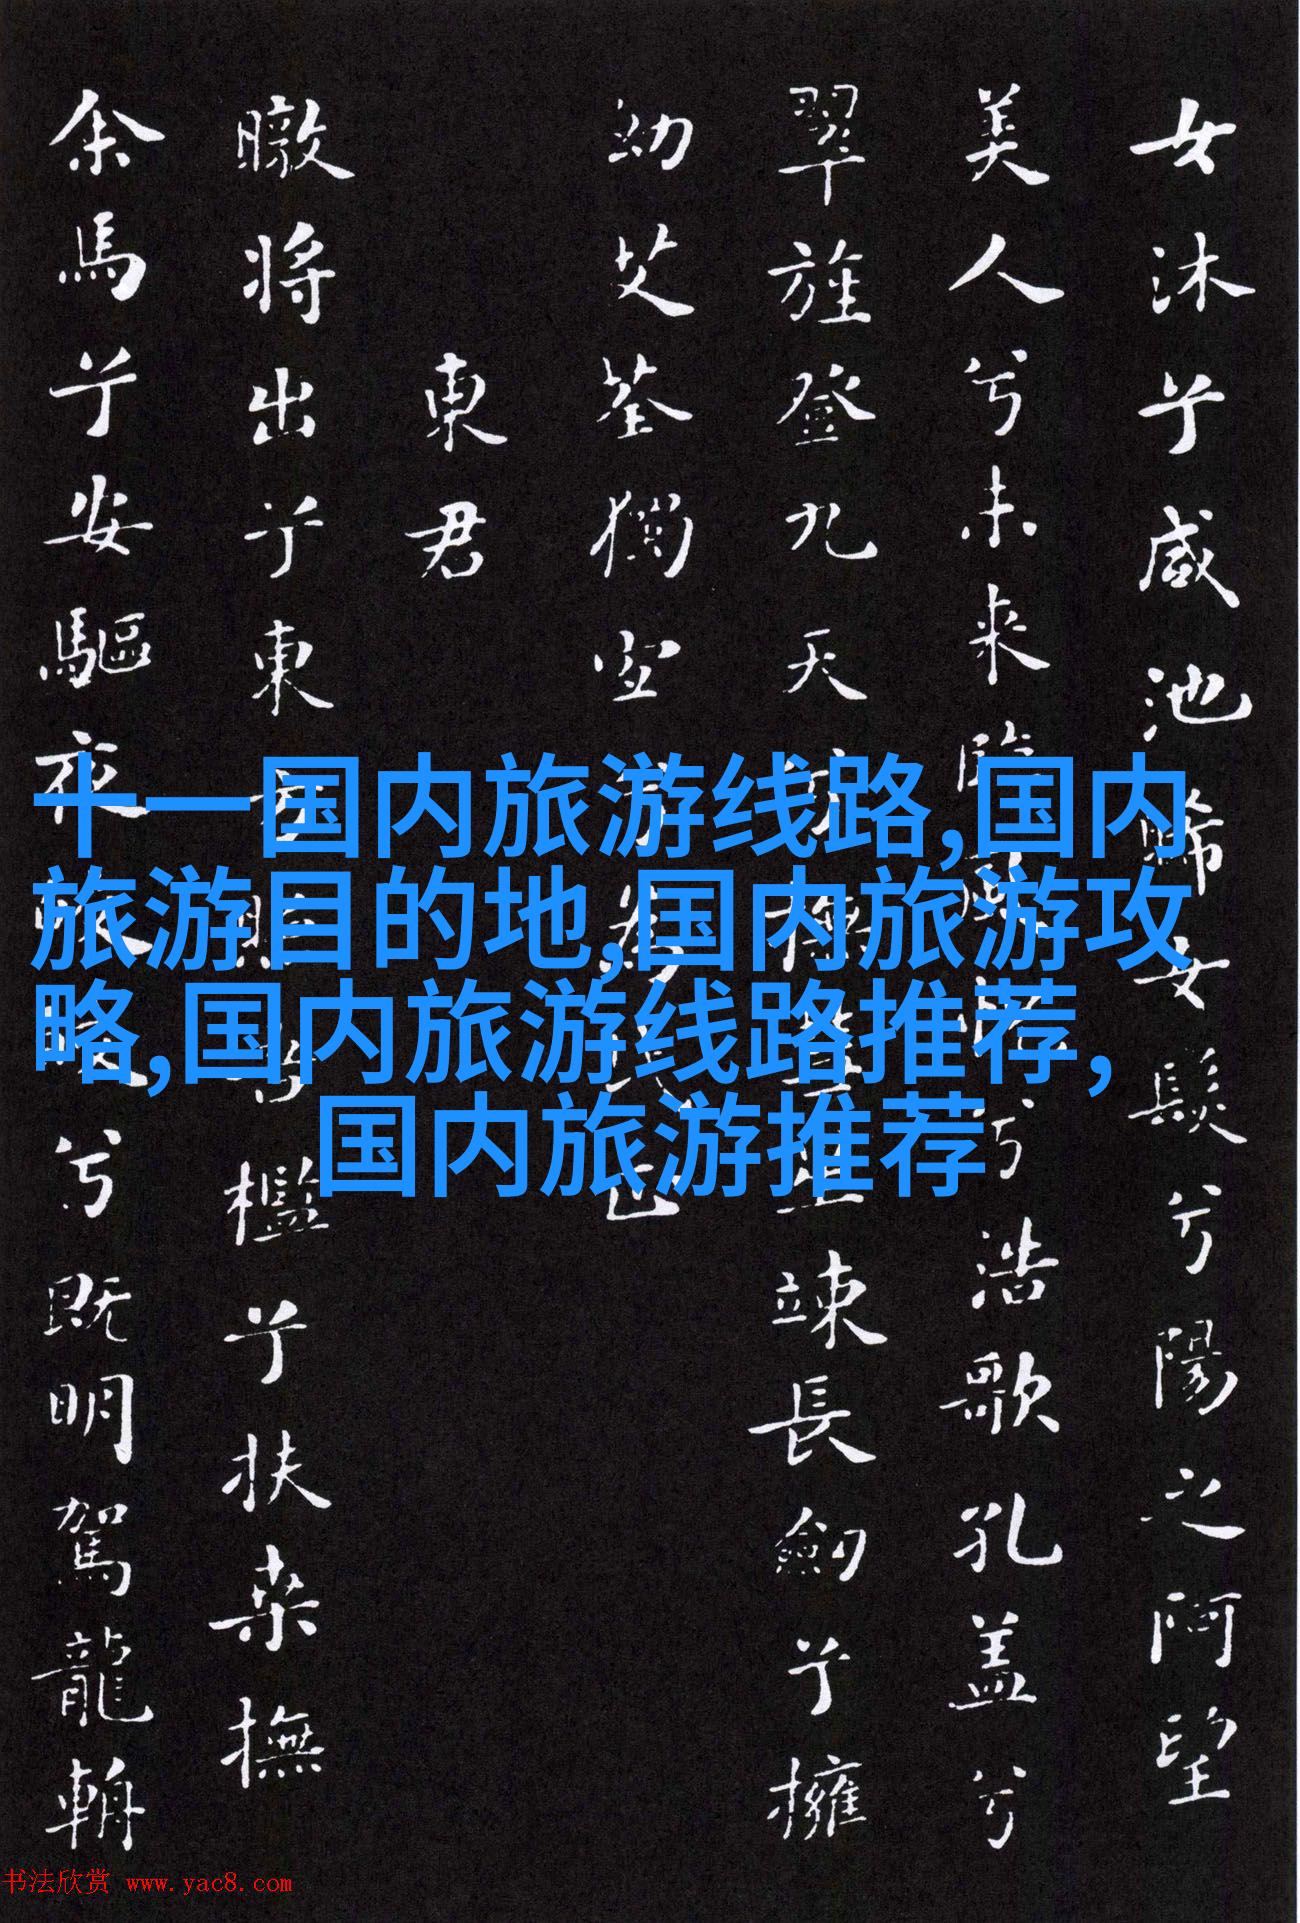 女沐兮咸池晞女髮兮陽之阿望
美人兮未来臨風怳兮浩歌孔盖兮
翠旌登九天兮撫彗星竦長劍兮擁
幼艾荃獨宜兮為民正
東君
暾将出兮東方照吾檻兮扶桑撫
余馬兮安驅夜皎皎兮既明駕龍輈
十一国内旅游线路,国内
旅游目的地,国内旅游攻
略,国内旅游线路推荐,
国内旅游推荐
书法欣赏 www.yac8.com